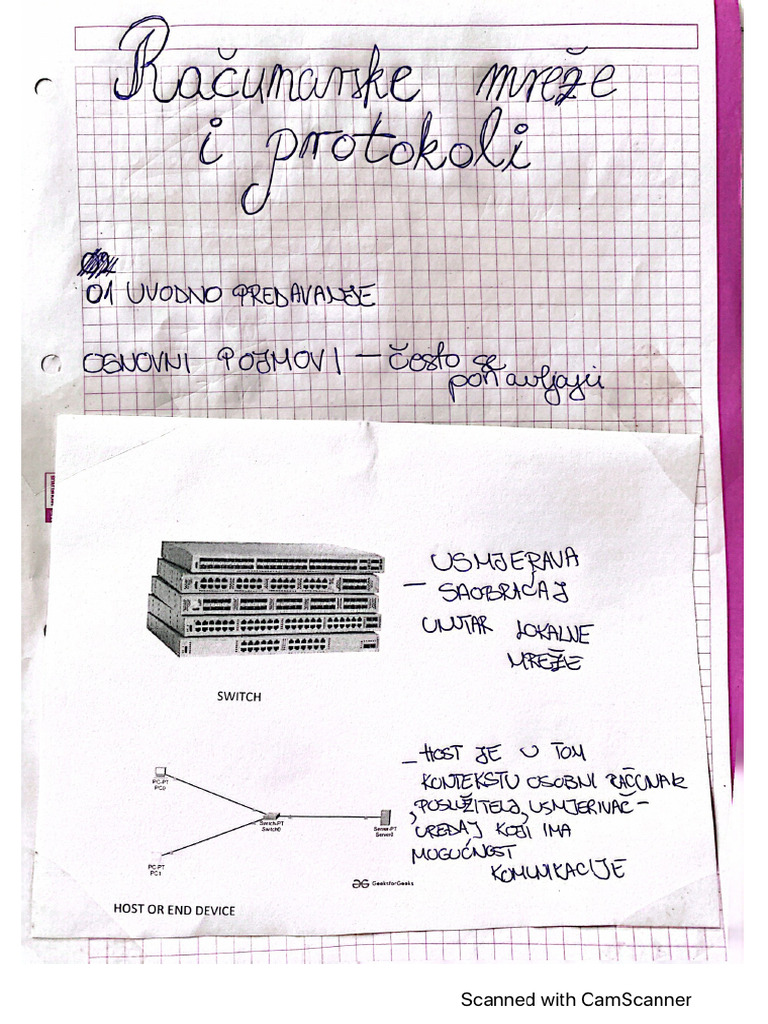 Računarske mreže
i protokoli
01 UVODNO PREDAVANJE
OSNOVNI POJMOVI – često se
ponavljaju
USMJERAVA
– SAOBRAĆAJ
UNUTAR LOKALNE
MREŽE
SWITCH
– HOST JE U TOM
KONTEKSTU OSOBNI RAČUNAR
, POSLUŽITELJ, USMJERIVAČ –
UREĐAJ KOJI IMA
MOGUĆNOST
KOMUNIKACIJE
PC-PT
PC0
Switch-PT
Switch0
Server-PT
Server0
PC-PT
PC1
GeeksforGeeks
HOST OR END DEVICE
Scanned with CamScanner